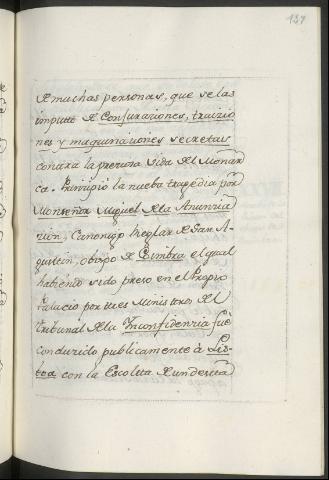 137
de muchas personas, que se las
impute de Conjuraciones, traicio
nes y maquinaciones secretas
contra la preciosa vida del Monar
ca. Principió la nueba tragedia por
Monseñor Miguel de la Anuncia
zion, Canonigo Reglar de San A-
gustin, obispo de Coimbra el qual
habiendo sido preso en el Propio
Palacio por tres Ministros del
tribunal de la Inconfidenzia fue
conducido publicamente à Lis-
boa con la Escolta de un desta